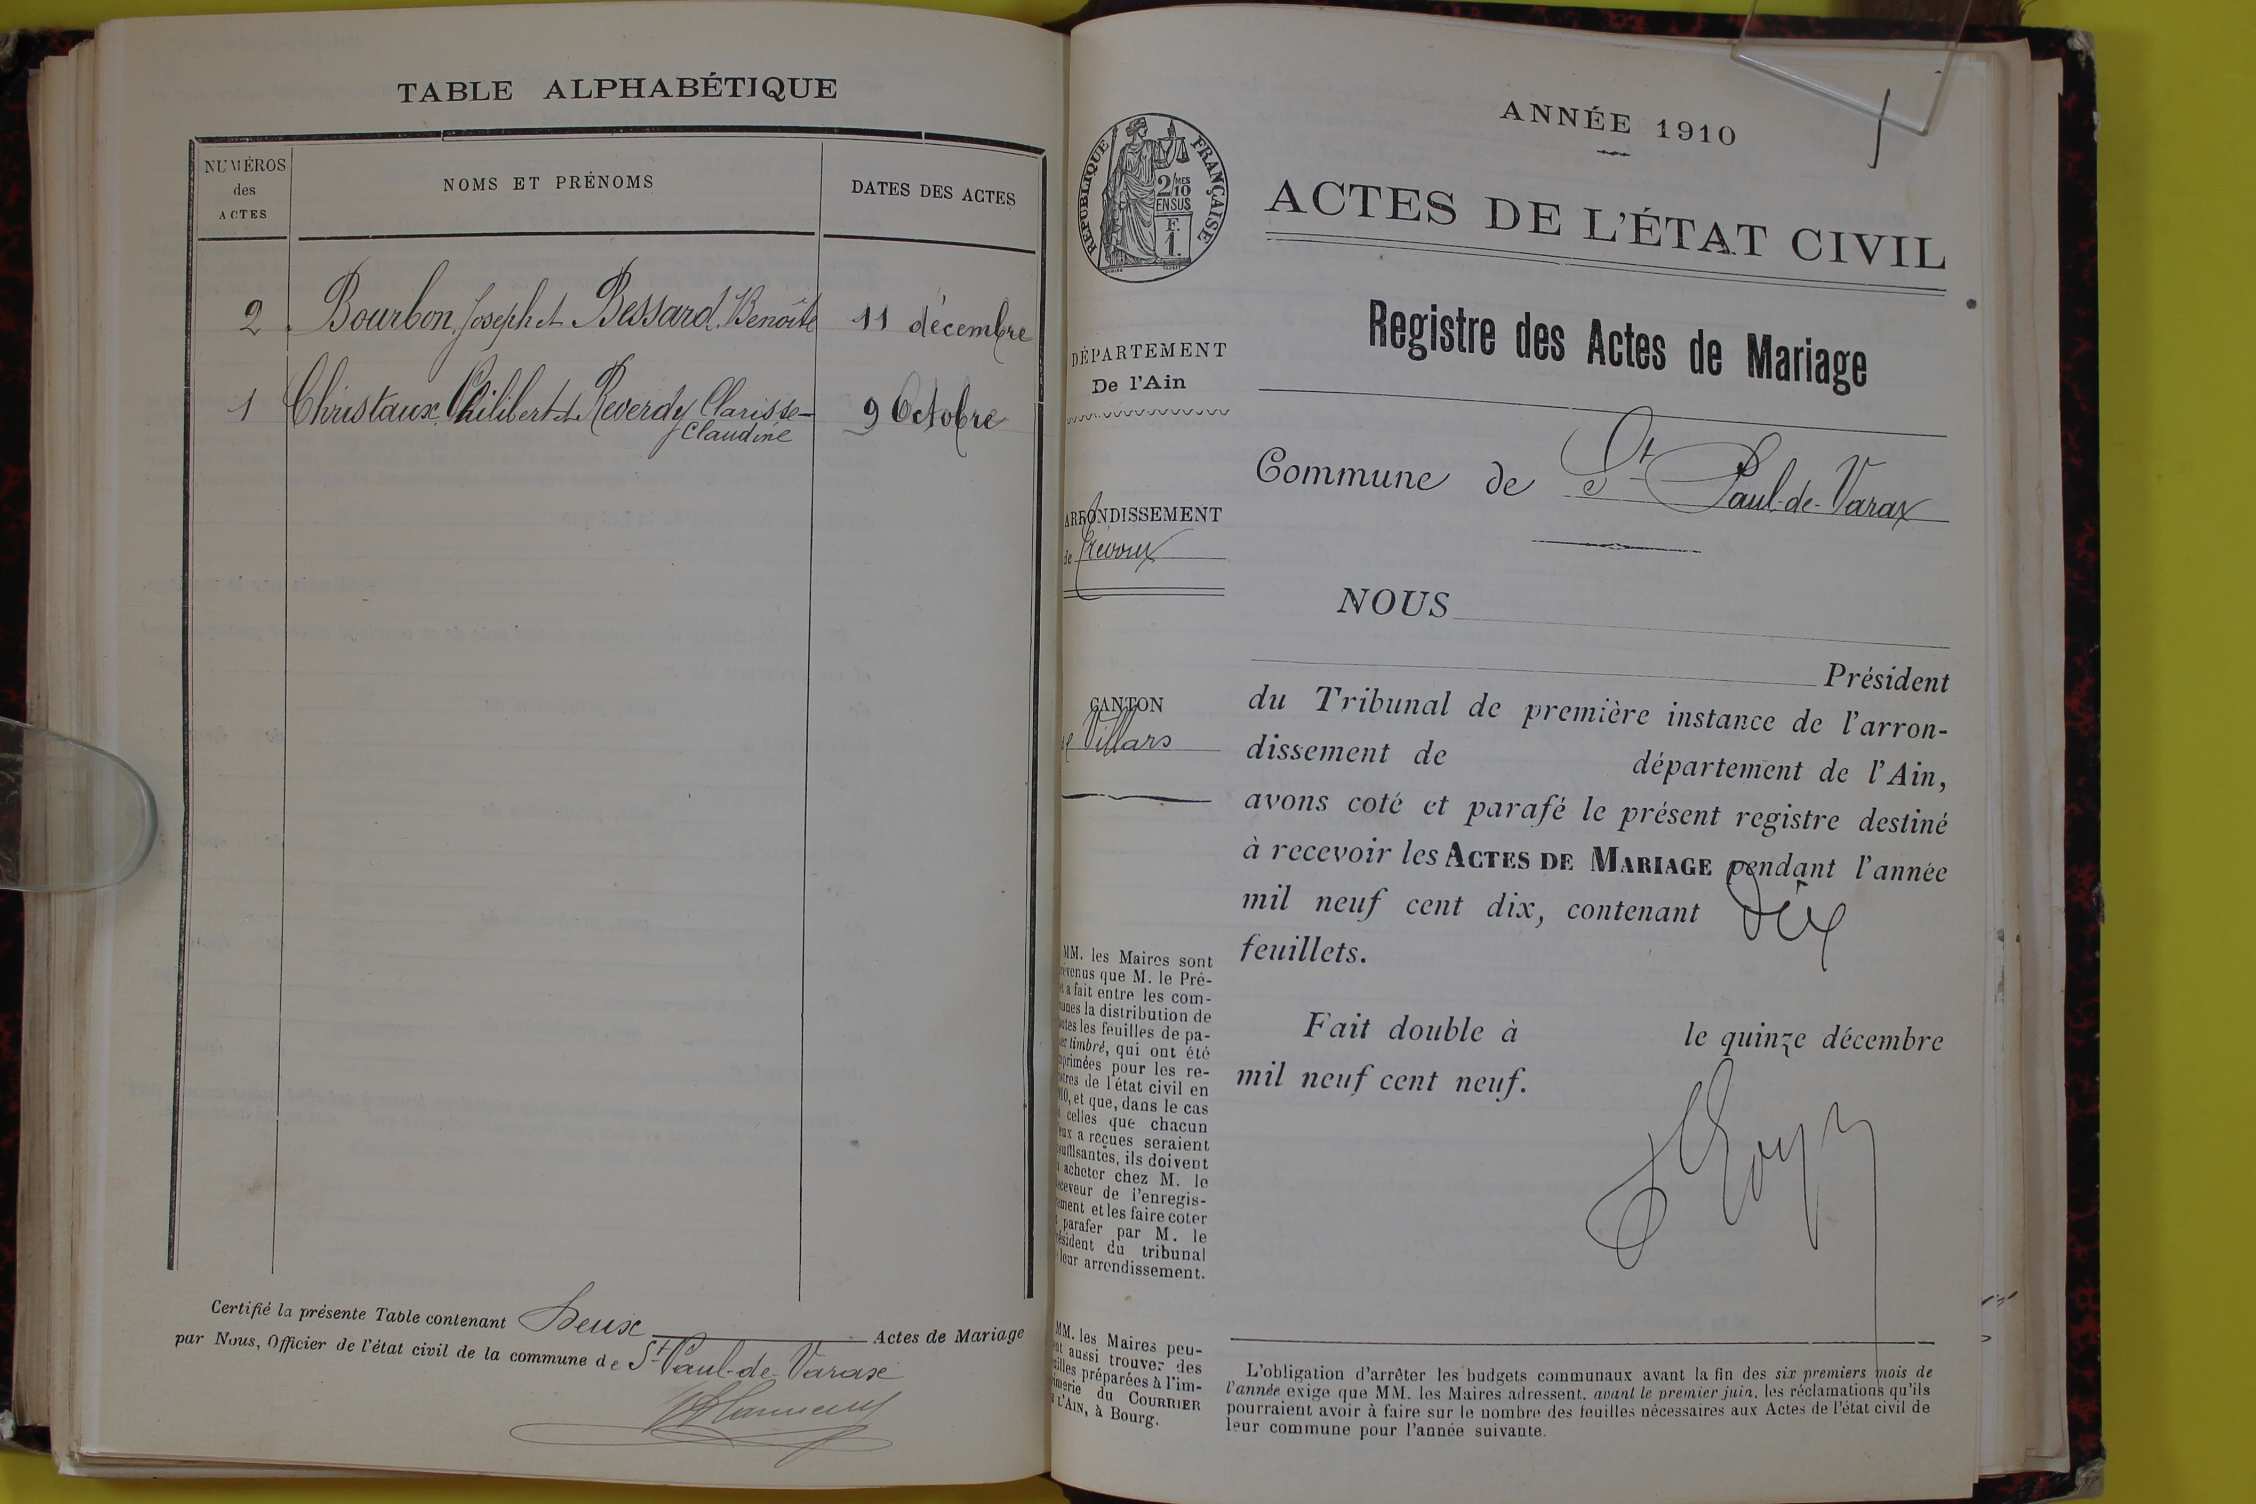 TABLE ALPHABÉTIQUE
NUMÉROS
des
ACTES
NOMS ET PRÉNOMS
DATES DES ACTES
2 Bourbon Joseph et Bessard Benoîte 11 décembre
1 Christaux Philibert et Reverdy Clarisse- 9 Octobre
Claudine
Certifié la présente Table contenant Deux Actes de Mariage
par Nous, Officier de l'état civil de la commune de St Paul-de-Varax
ANNÉE 1910
1
ACTES DE L'ÉTAT CIVIL
RÉPUBLIQUE FRANÇAISE
2/10 MES
EN SUS
F.
1.
Registre des Actes de Mariage
DÉPARTEMENT
De l'Ain
Commune de St Paul-de-Varax
ARRONDISSEMENT
de Trévoux
NOUS
Président
CANTON
de Villars
du Tribunal de première instance de l'arron-
dissement de département de l'Ain,
avons coté et parafé le présent registre destiné
à recevoir les ACTES DE MARIAGE pendant l'année
mil neuf cent dix, contenant Dix
feuillets.
Fait double à le quinze décembre
mil neuf cent neuf.
MM. les Maires sont
revenus que M. le Pré-
et a fait entre les com-
unes la distribution de
utes les feuilles de pa-
er timbré, qui ont été
primées pour les re-
stres de l'état civil en
10, et que, dans le cas
celles que chacun
eux a reçues seraient
suffisantes, ils doivent
acheter chez M. le
eceveur de l'enregis-
ement et les faire coter
parafer par M. le
ésident du tribunal
leur arrondissement.
MM. les Maires peu-
ent aussi trouver des
uilles préparées à l'im-
imerie du COURRIER
L'AIN, à Bourg.
L'obligation d'arrêter les budgets communaux avant la fin des six premiers mois de
l'année exige que MM. les Maires adressent, avant le premier juin, les réclamations qu'ils
pourraient avoir à faire sur le nombre des feuilles nécessaires aux Actes de l'état civil de
leur commune pour l'année suivante.